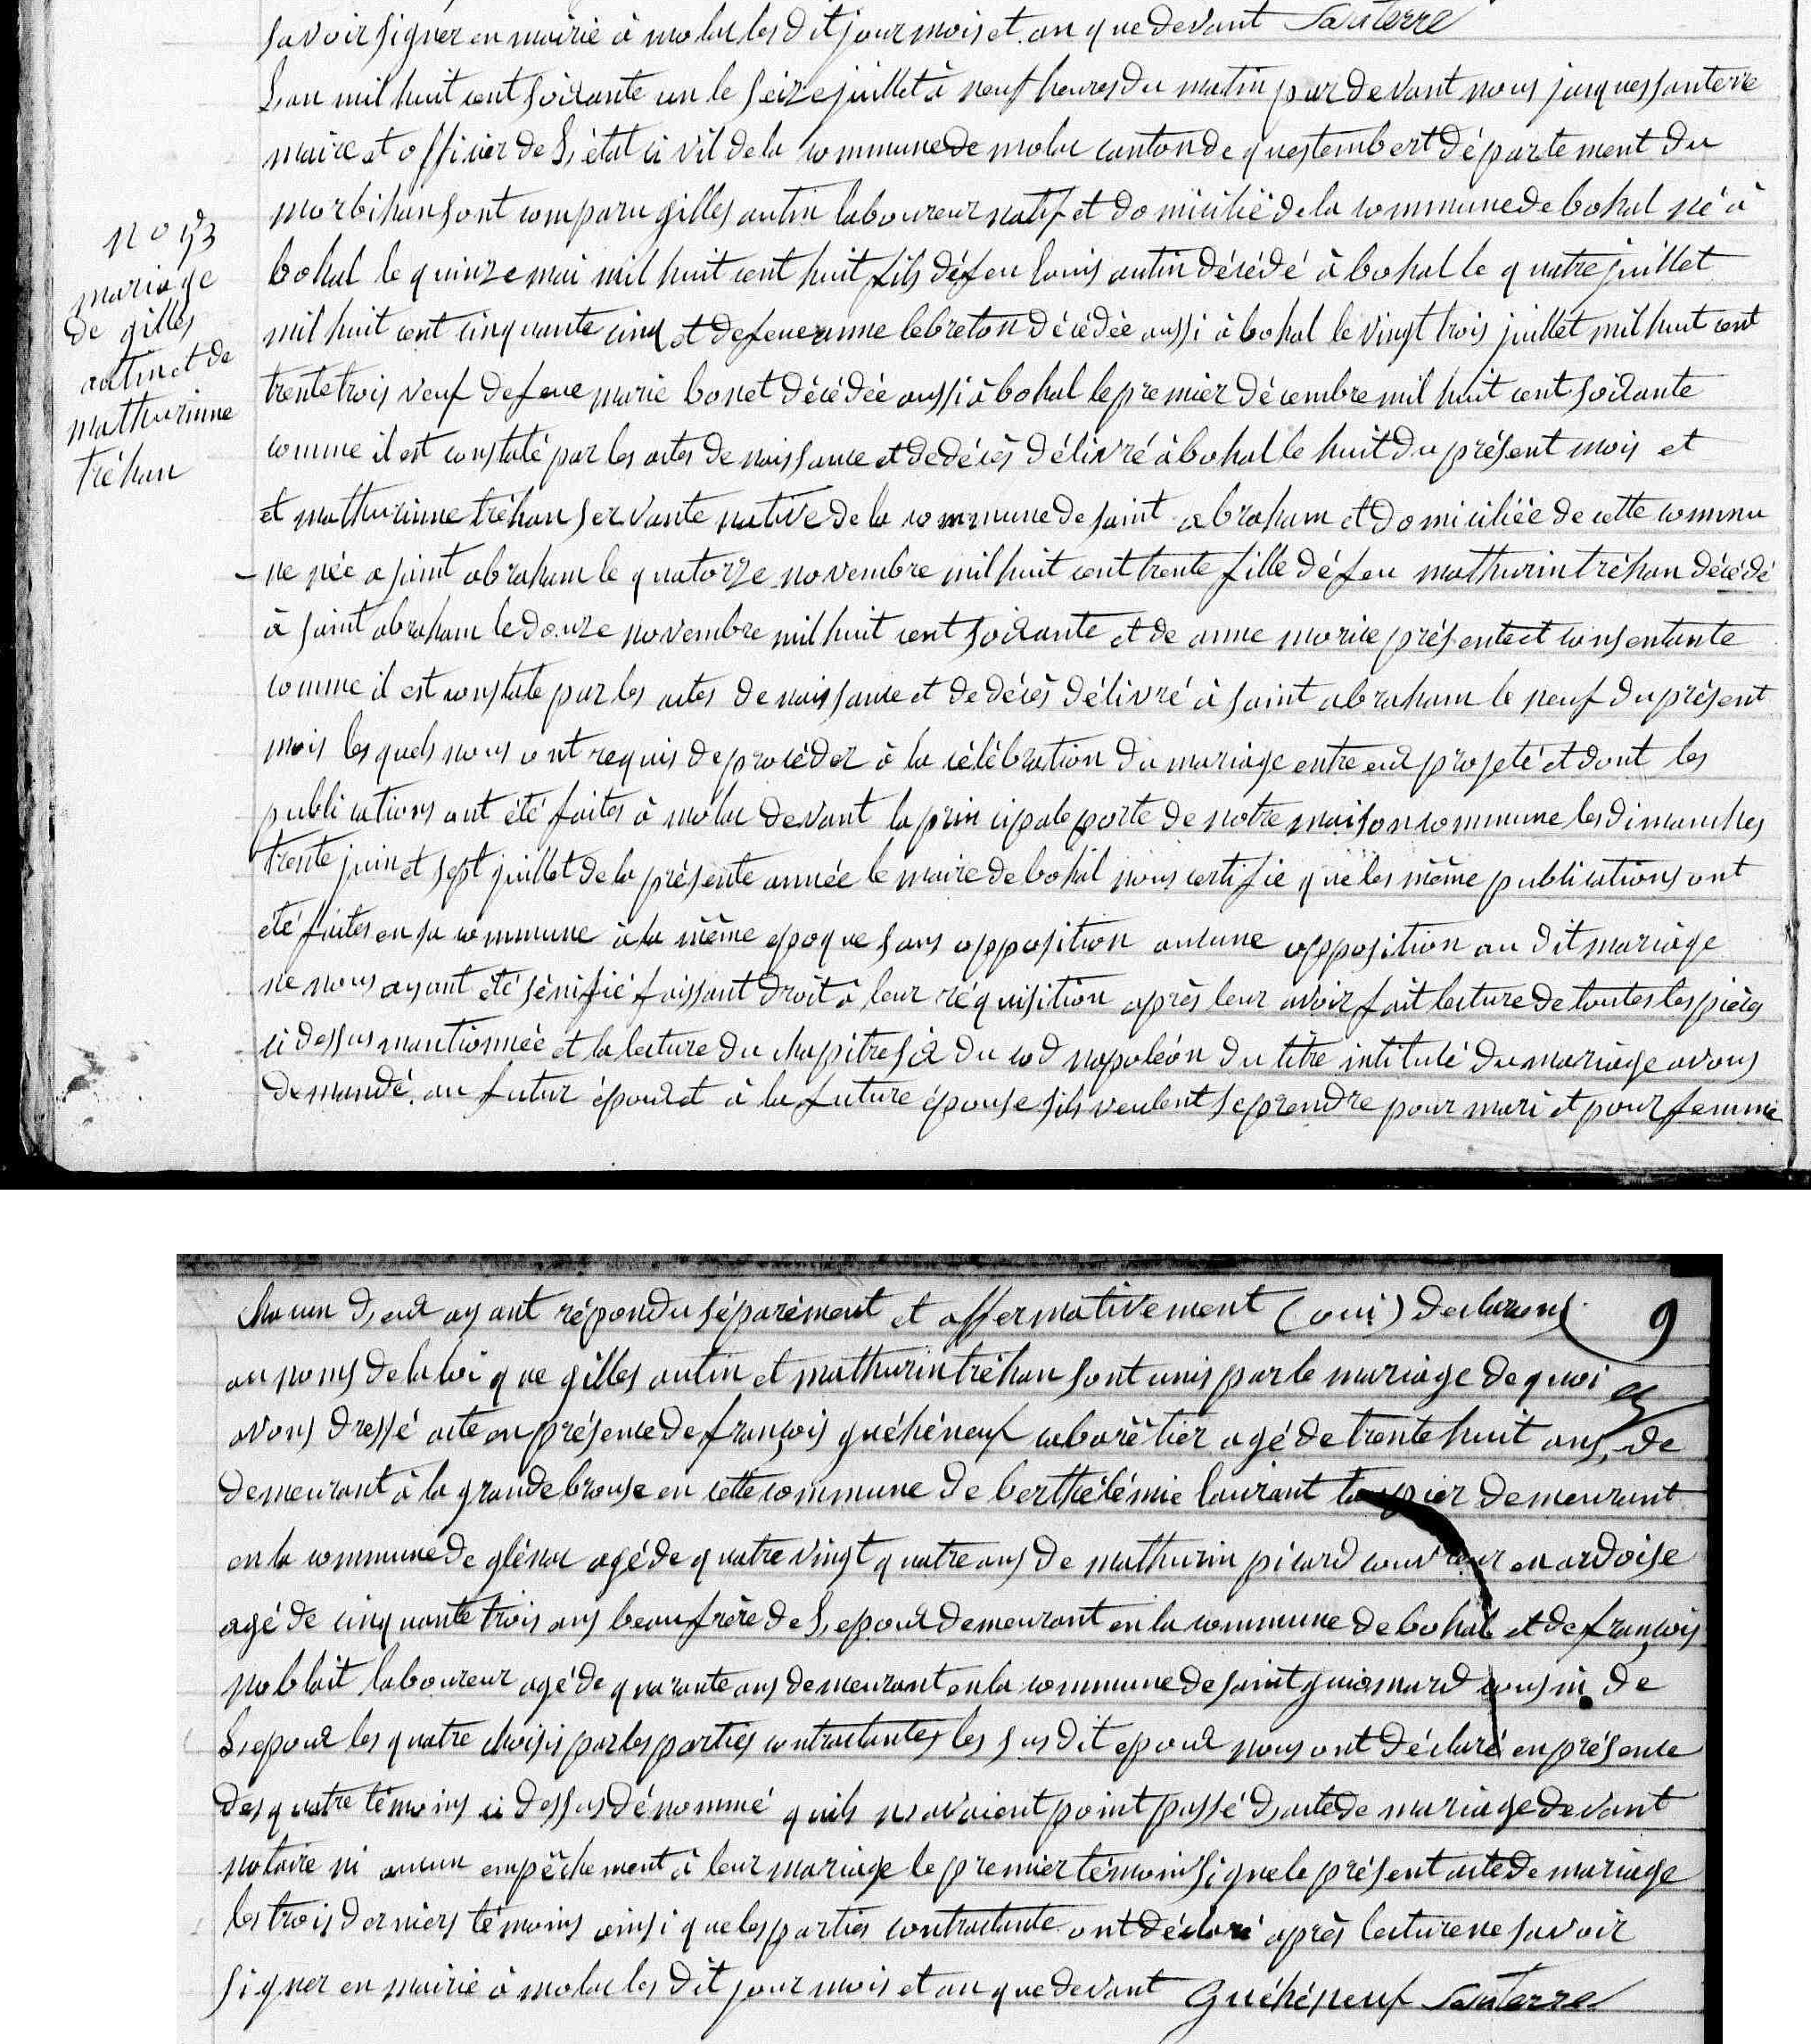 savoir signer en mairie à molac les dit jour mois et an que devant Santerre
L,an mil huit cent soixante un le seize juillet à neuf heures du matin par devant nous jacques santerre
maire et officier de L,état civil de la commune de molac canton de questembert département du
morbihan sont comparu gilles autin laboureur natif et domicilié de la commune de bohal né à
bohal le quinze mai mil huit cent huit fils défeu louis autin décédé à bohal le quatre juillet
mil huit cent cinquante cinq et defeue anne lebreton décédée aussi à bohal le vingt trois juillet mil huit cent
trente trois veuf defeue marie bonet décédée aussi à bohal le premier décembre mil huit cent soixante
comme il est constaté par les actes de naissance et dedécès délivré à bohal le huit du présent mois et
et mathurinne tréhan servante native de la commune de saint abraham et domiciliée de cette commu
- ne née a saint abraham le quatorze novembre mil huit cent trente fille défeu mathurin tréhan décédé
à saint abraham le douze novembre mil huit cent soixante et de anne morice présente et consentante
comme il est constaté par les actes de naissance et de décès délivré à saint abraham le neuf du présent
mois les quels nous ont requis de procéder à la célébration du mariage entre eux projeté et dont les
publications ont été faites à molac devant la principale porte de notre maison commune les dimanches
trente juin et sept juillet de la présente année le maire de bohal nous certifie que les même publications ont
été faites en sa commune à la même epoque sans opposition aucune opposition au dit mariage
ne nous ayant été sénifié faissant droit à leur réquisition après leur avoir fait lecture de toutes les pièces
ci dessus mantionnée et la lecture du chapitre six du cod napoléon du titre intitulé du mariage avons
demandé au futur époux et à la future épouse sils veulent se prendre pour mari et pour femme
no 13
mariage
de gilles
autin et de
mathurinne
tréhan
chacun d,eux ayant répondu séparément et affermativement (oui) declarons 9
au noms de la loi que gilles autin et mathurin tréhan sont unis par le mariage de quoi
avons dressé acte en présence de françois guéhéneuf cabarêtier agé de trente huit ans, de
demeurant à la grande brouse en cette commune de berthélémie laurant demeurant
en la commune de glénac agé de quatre vingt quatre ans de mathurin picard couvreur en ardoise
agé de cinquante trois ans beaufrère de L,epoux demeurant en la commune de bohal et de françois
noblait laboureur agé de quarante ans demeurant en la commune de saint guiomard cousin de
L,epoux les quatre choisis par les parties contractantes les susdit epoux nous ont déclaré en présence
des quatre témoins ci dessus dénommé quils n,avaient point passé d,acte de mariage devant
notaire ni aucun empêchement à leur mariage le premier témoin signe le présent acte de mariage
les trois derniers témoins ainsi que les parties contractante ont déclaré après lecture ne savoir
signer en mairie à molac les dit jour mois et an que devant Guéhéneuf Santerre